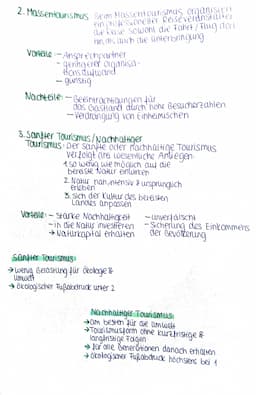 2. Massentourismus: Beim Massentourismus organisiert
ein professioneller Reiseveranstalter
die Reise sowohl die Fahrt / Flug dort
hin als auch die unterbringung
Vorteile: - Ansprechpartner
- geringerer organisa-
tionsaufwand
- günstig
Nachteile: - Beeinträchtigungen für
das Gastland durch hohe Besucherzahlen
- Verdrängung von Einheimischen
3. Sanfter Tourismus/Nachhaltiger
Tourismus: Der sanfte oder nachhaltige Tourismus
verfolgt drei wesentliche Anliegen
1. so wenig wie möglich auf die
bereiste Natur einwirken
2. Natur nah, intensiv & ursprünglich
erleben
3. sich der Kultur des bereisten
Landes anpassen
Vorteile: - starke Nachhaltigkeit
- in die Natur investieren
→ Naturkapital erhalten
- unverfälscht
- Sicherung des Einkommens
der Bevölkerung
Sanfter Tourismus:
→ wenig Belastung für Ökologie &
Umwelt
→ ökologischer Fußabdruck unter 2
Nachhaltiger Tourismus:
→ am besten für die Umwelt
→ Tourismusform ohne kurzfristige &
langfristige Folgen
→ für alle Generationen danach erhalten
→ ökologischer Fußabdruck höchstens bei 1